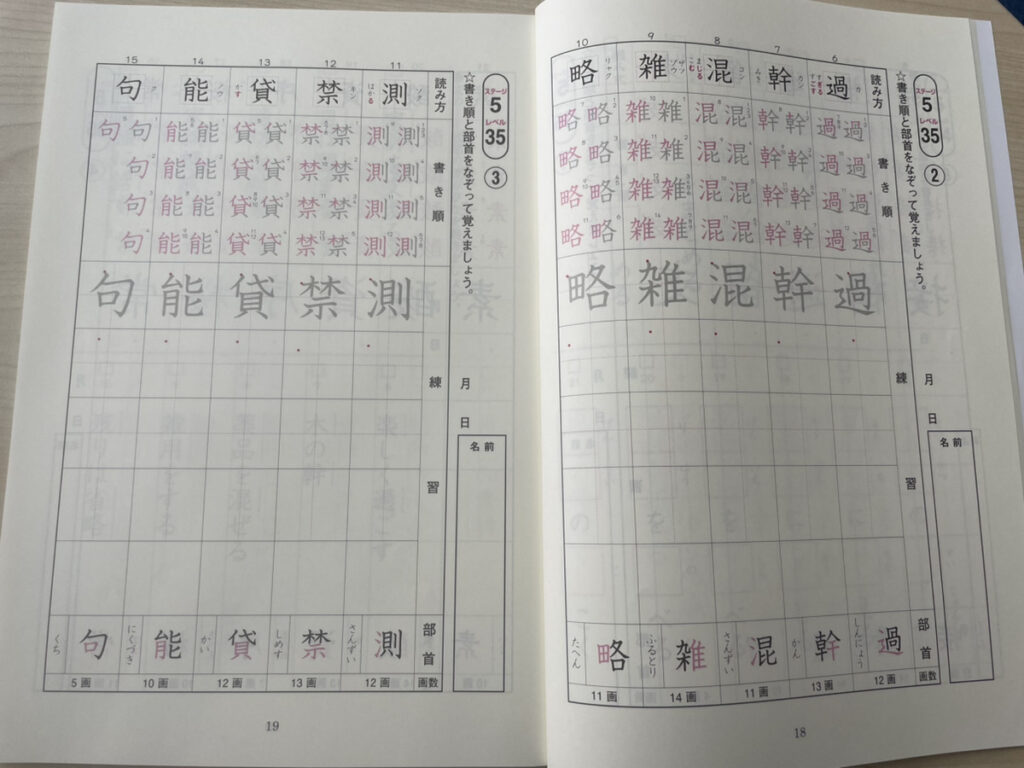 ステージ 5 レベル 35 ②
☆書き順と部首をなぞって覚えましょう。
月 日
名前
読み方 書き順 練習 部首 画数
6 過 カ すぎる すごす
過過過過過過過過
過
過 しんにょう 12画
7 幹 カン みき
幹幹幹幹幹幹幹幹
幹
幹 かん 13画
8 混 コン まじる こむ
混混混混混混混混
混
混 さんずい 11画
9 雑 ザツ ゾウ
雑雑雑雑雑雑雑雑
雑
雑 ふるとり 14画
10 略 リャク
略略略略略略略略
略
略 たへん 11画
18
ステージ 5 レベル 35 ③
☆書き順と部首をなぞって覚えましょう。
月 日
名前
読み方 書き順 練習 部首 画数
11 測 ソク はかる
測測測測測測測測
測
測 さんずい 12画
12 禁 キン
禁禁禁禁禁禁禁禁
禁
禁 しめす 13画
13 貸 かす
貸貸貸貸貸貸貸貸
貸
貸 かい 12画
14 能 ノウ
能能能能能能能能
能
能 にくづき 10画
15 句 ク
句句句句句
句
句 くち 5画
19